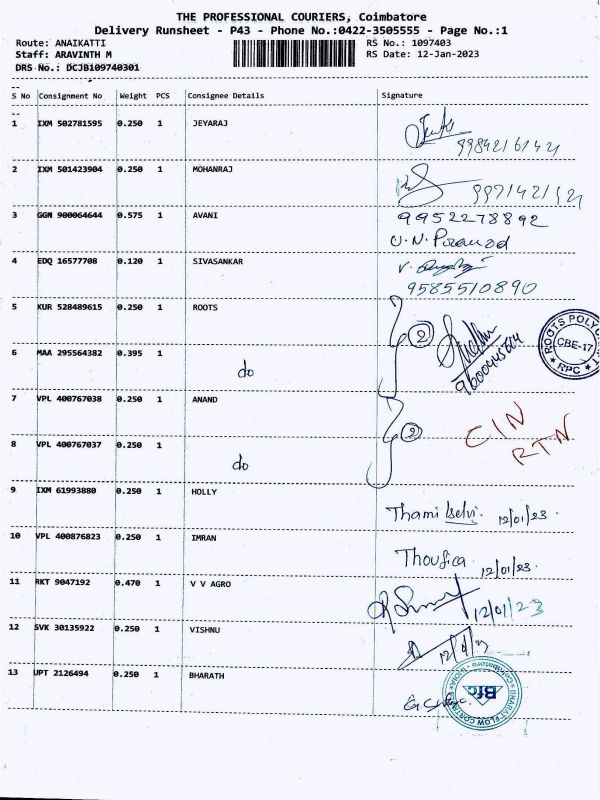 THE PROFESSIONAL COURIERS, Coimbatore
Delivery Runsheet - P43 - Phone No.:0422-3505555 - Page No.:1
Route: ANAIKATTI
RS No.: 1097403
Staff: ARAVINTH M
RS Date: 12-Jan-2023
DRS No.: DCJB109740301
S No Consignment No Weight PCS Consignee Details Signature
1 IXM 502781595 0.250 1 JEYARAJ
2 IXM 501423904 0.250 1 MOHANRAJ
3 GGN 900064644 0.575 1 AVANI 9952278892
4 EDQ 16577708 0.120 1 SIVASANKAR
9585510890
5 KUR 528489615 0.250 1 ROOTS 2
ROOTS POLY CBE-17 RPC
6 MAA 295564382 0.395 1
do
7 VPL 400767038 0.250 1 ANAND 2 CIN
RTN
8 VPL 400767037 0.250 1
do
9 IXM 61993880 0.250 1 HOLLY
Thamilselvi. 12/01/23.
10 VPL 400876823 0.250 1 IMRAN
Thoufica. 12/01/23.
11 RKT 9047192 0.470 1 V V AGRO
12/01/23
12 SVK 30135922 0.250 1 VISHNU
13 UPT 2126494 0.250 1 BHARATH
Bfc BHARAT FLOW Coimbatore